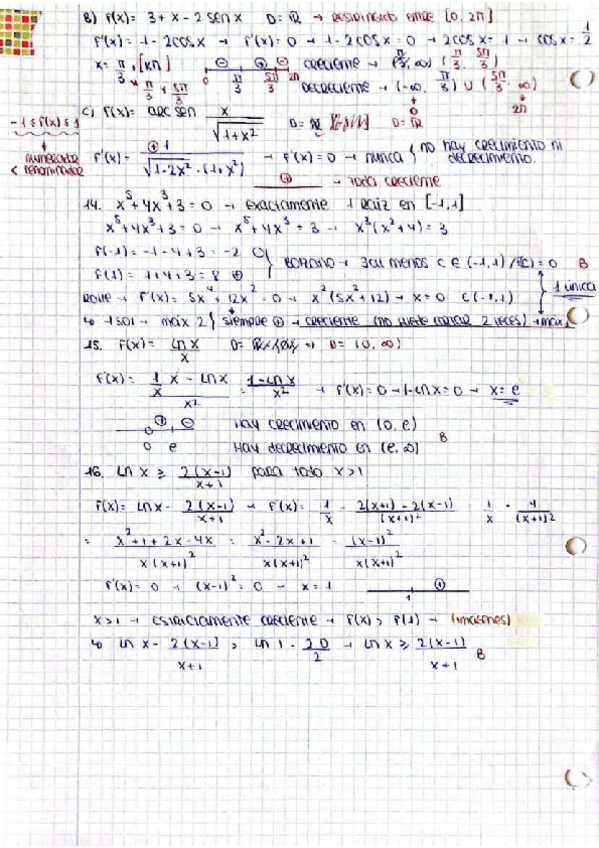 B) f(x) = 3 + x - 2 sen x D = ℝ → restringido entre [0, 2π]
f'(x) = 1 - 2cosx → f'(x) = 0 → 1 - 2cosx = 0 → 2cosx = 1 → cosx = 1/2
x = π/3 + [kπ] ⊖ ⊕ ⊖ creciente → (π/3, ∞) (π/3, 5π/3)
π/3 y 5π/3 0 π/3 5π/3 2π Decreciente → (-∞, π/3) ∪ (5π/3, ∞)
0 2π
c) f(x) = arc sen x/√(1+x²) D = ℝ D = ℝ
-1 ≤ f(x) ≤ 1
numerador < denominador
f'(x) = ⊕ 1/(√(1-2x²) · (1+x²)) → f'(x) = 0 → nunca { no hay crecimiento ni decrecimiento.
⊕ → toda creciente
14. x⁵ + 4x³ + 3 = 0 → exactamente 1 Raiz en [-1, 1]
x⁵ + 4x³ + 3 = 0 → x⁵ + 4x³ = 3 → x³(x² + 4) = 3
f(-1) = -1 - 4 + 3 = -2 ⊖
f(1) = 1 + 4 + 3 = 8 ⊕ } Bolzano → ∃ al menos c ∈ (-1, 1) / f(c) = 0 B
1 única
Rolle → f'(x) = 5x⁴ + 12x² = 0 → x²(5x² + 12) → x = 0 ∈ (-1, 1)
↳ 1 sol → máx 2 { siempre ⊕ → creciente (no puede cortar 2 veces) → máx 1
15. f(x) = ln x/x ⇒ D = (0, ∞)
f'(x) = (1/x · x - ln x)/x² = (1 - ln x)/x² → f'(x) = 0 → 1 - ln x = 0 → x = e
⊕ ⊖ Hay crecimiento en (0, e)
0 e Hay decrecimiento en (e, ∞) B
16. ln x ≥ 2(x-1)/(x+1) para todo x > 1
f(x) = ln x - 2(x-1)/(x+1) → f'(x) = 1/x - (2(x+1) - 2(x-1))/(x+1)² 1/x - 4/(x+1)²
= (x² + 1 + 2x - 4x)/(x(x+1)²) = (x² - 2x + 1)/(x(x+1)²) = (x-1)²/(x(x+1)²)
f'(x) = 0 → (x-1)² = 0 → x = 1 ⊕
1
x > 1 → estrictamente creciente → f(x) > f(1) → (imagenes)
↳ ln x - 2(x-1)/(x+1) > ln 1 - 2·0/2 → ln x ≥ 2(x-1)/(x+1) B